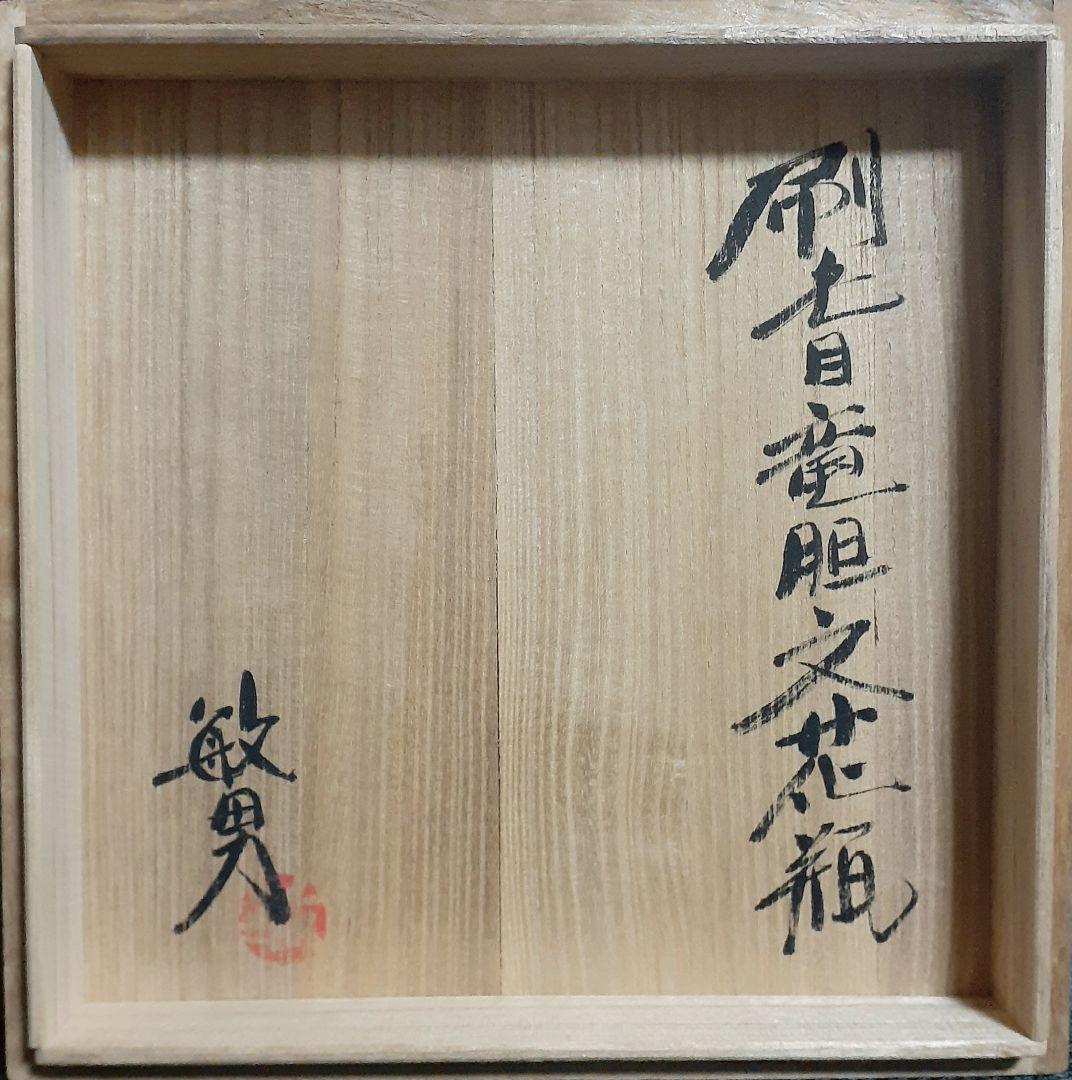 刷毛目竜胆文花瓶
敏男